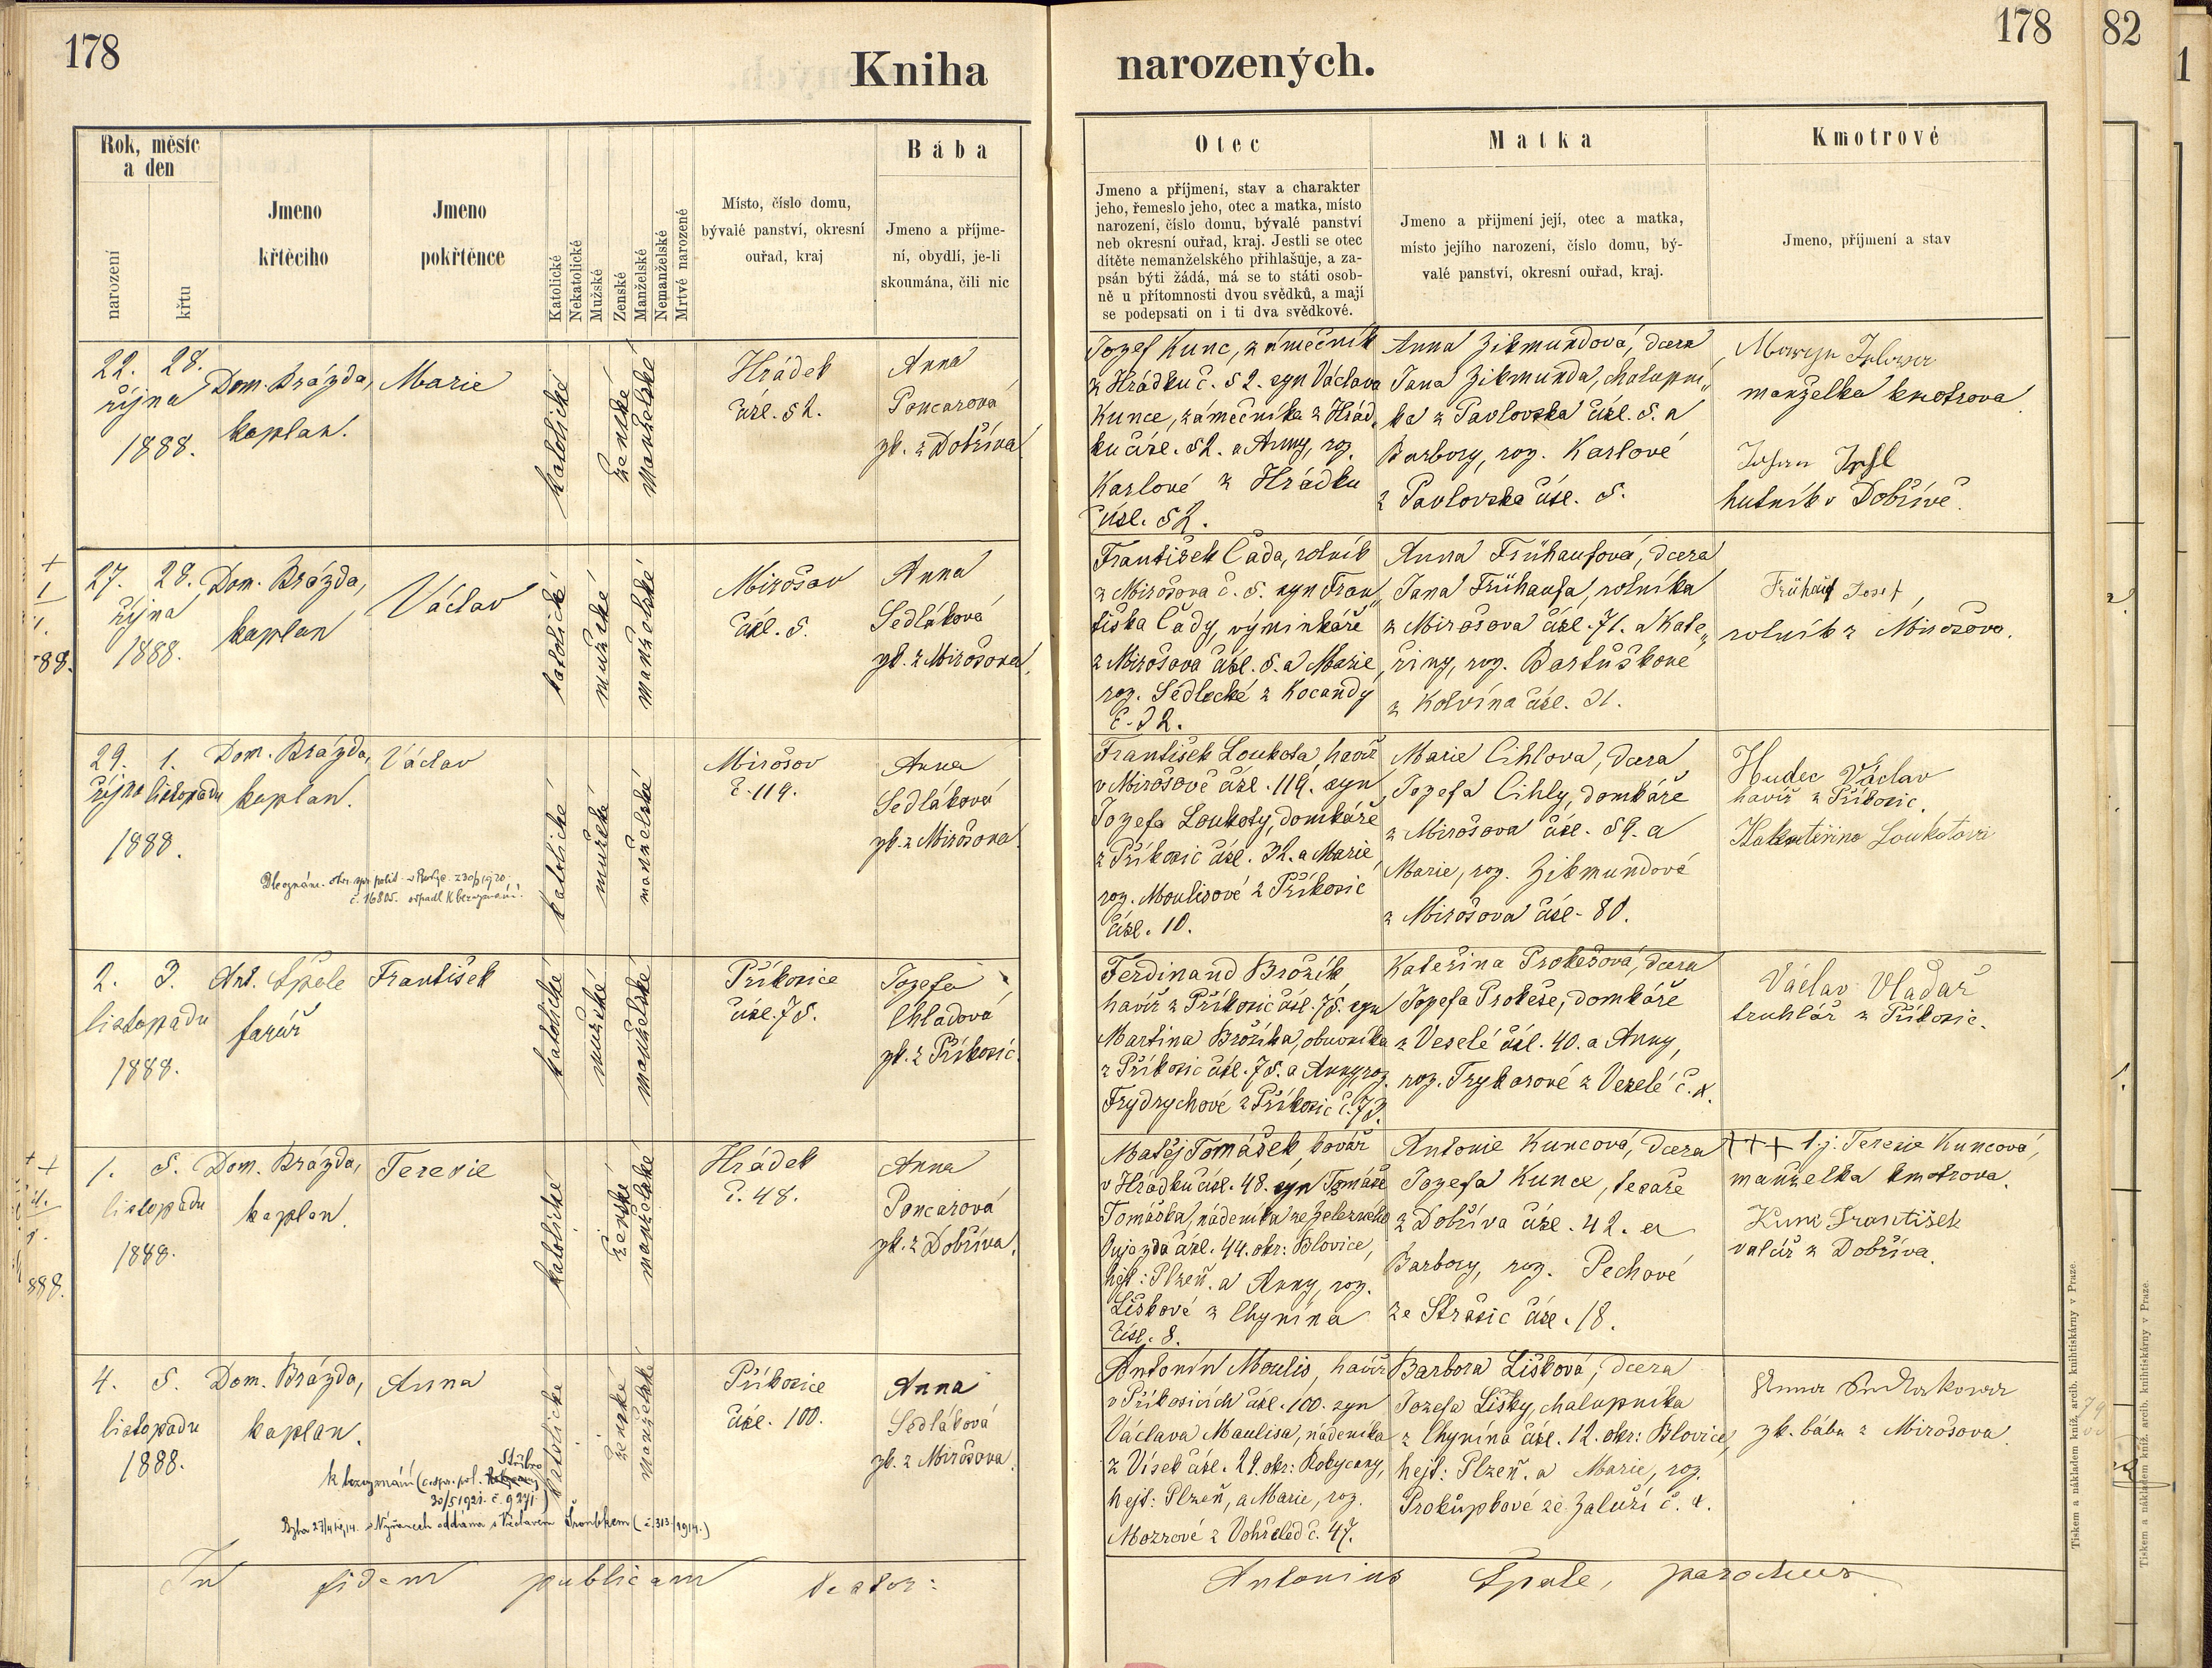 178
Kniha
narozených.
178
82
1
Rok, měsíc
a den
narození
křtu
Jmeno
křtěcího
Jmeno
pokřtěnce
Katolické
Nekatolické
Mužské
Ženské
Manželské
Nemanželské
Mrtvě narozené
Místo, číslo domu,
bývalé panství, okresní
ouřad, kraj
Bába
Jmeno a příjme-
ní, obydlí, je-li
skoumána, čili nic
Otec
Jmeno a příjmení, stav a charakter
jeho, řemeslo jeho, otec a matka, místo
narození, číslo domu, bývalé panství
neb okresní ouřad, kraj. Jestli se otec
dítěte nemanželského přihlašuje, a za-
psán býti žádá, má se to státi osob-
ně u přítomnosti dvou svědků, a mají
se podepsati on i ti dva svědkové.
Matka
Jmeno a přijmení její, otec a matka,
místo jejího narození, číslo domu, bý-
valé panství, okresní ouřad, kraj.
Kmotrové
Jmeno, příjmení a stav
22. 28.
října
1888.
Dom. Brázda,
kaplan.
Marie
katolické
ženské
manželské
Hrádek
čísl. 52.
Anna
Poncarová
zk. z Dobříva
Jozef Kunc, zámečník
z Hrádku č. 52. syn Václava
Kunce, zámečníka z Hrád„
ku čísl. 52. a Anny, roz.
Karlové z Hrádku
čísl. 52.
Anna Zikmundová, dcera
Jana Zikmunda, chalupní„
ka z Pavlovska čísl. 5. a
Barbory, roz. Karlové
z Pavlovska čísl. 5.
manželka kmotrova
hutník v Dobřívě.
27. 28.
října
1888.
Dom. Brázda,
kaplan
Václav
katolické
mužské
manželské
Mirošov
čísl. 5.
Anna
Sedláková
zk. z Mirošova
František Čada, rolník
z Mirošova č. 5. syn Fran„
tiška Čady, výminkáře
z Mirošova čísl. 5. a Marie
roz. Sedlecké z Kocandy
č. 32.
Anna Frühaufová, dcera
Jana Frühaufa, rolníka
z Mirošova čísl. 71. a Kate„
řiny, roz. Bartůškové
z Kolvína čísl. 31.
Frühauf Josef,
rolník z Mirošova.
29. 1.
října listopadu
1888.
Dom. Brázda,
kaplan.
Václav
katolické
mužské
manželské
Mirošov
č. 119.
Anna
Sedláková
zk. z Mirošova
č. 16805. odpadl k bezvyznání.
František Loukota, havíř
v Mirošově čísl. 119. syn
Jozefa Loukoty, domkáře
z Příkosic čísl. 32. a Marie,
roz. Moulisové z Příkosic
čísl. 10.
Marie Cihlova, dcera
Jozefa Cihly, domkáře
z Mirošova čísl. 59. a
Marie, roz. Zikmundové
z Mirošova čísl. 80.
Hudec Václav
havíř z Příkosic.
2. 3.
listopadu
1888.
Ant. Špale
farář
František
katolické
mužské
manželské
Příkosice
čísl. 75.
Jozefa
Chladová
zk. z Příkosic
Ferdinand Brožík
havíř z Příkosic čísl. 75. syn
Martina Brožíka, obuvníka
z Příkosic čísl. 75. a Anny, roz.
Frydrychové z Příkosic č. 73.
Kateřina Prokešová, dcera
Jozefa Prokeše, domkáře
z Veselé čísl. 40. a Anny,
roz. Trykarové z Veselé č. 4.
Václav Vladař
truhlář z Příkosic.
1. 5.
listopadu
1888.
Dom. Brázda,
kaplan.
Terezie
katolické
ženské
manželské
Hrádek
č. 48.
Anna
Poncarová
zk. z Dobříva.
Matěj Tomášek, kovář
v Hrádku čísl. 48. syn Tomáše
Tomáška, nádeníka ze Železného
Oujezda čísl. 44. okr: Blovice,
hejt: Plzeň. a Anny, roz.
Liškové z Chynína
čísl. 8.
Antonie Kuncová, dcera
Jozefa Kunce, tesaře
z Dobříva čísl. 42. a
Barbory, roz. Pechové
ze Strašic čísl. 18.
+++ t.j. Terezie Kuncová,
manželka kmotrova.
Kunc František
valcíř z Dobříva.
4. 5.
listopadu
1888.
Dom. Brázda,
kaplan.
Anna
katolické
ženské
manželské
Příkosice
čísl. 100.
Anna
Sedláková
zk. z Mirošova.
Stříbro
k bezvyznání
30/5 1921. č. 9271
Byla 27/4 1914. v Nýřanech oddána s Václavem Šroubkem (č. 313/1914.)
Antonín Moulis, havíř
v Příkosicích čísl. 100. syn
Václava Moulisa, nádeníka
z Vísek čísl. 22. okr: Rokycany,
hejt: Plzeň, a Marie, roz.
Mozrové z Vohřeled č. 47.
Barbora Lišková, dcera
Jozefa Lišky, chalupníka
z Chynína čísl. 12. okr: Blovice,
hejt: Plzeň. a Marie, roz.
Prokůpkové ze Zaluží č. 4.
zk. bába z Mirošova
In fidem publicam testor:
Antonius Špale, parochus
Tiskem a nákladem kníž. arcib. knihtiskárny v Praze.
Tiskem a nákladem kníž. arcib. knihtiskárny v Praze.